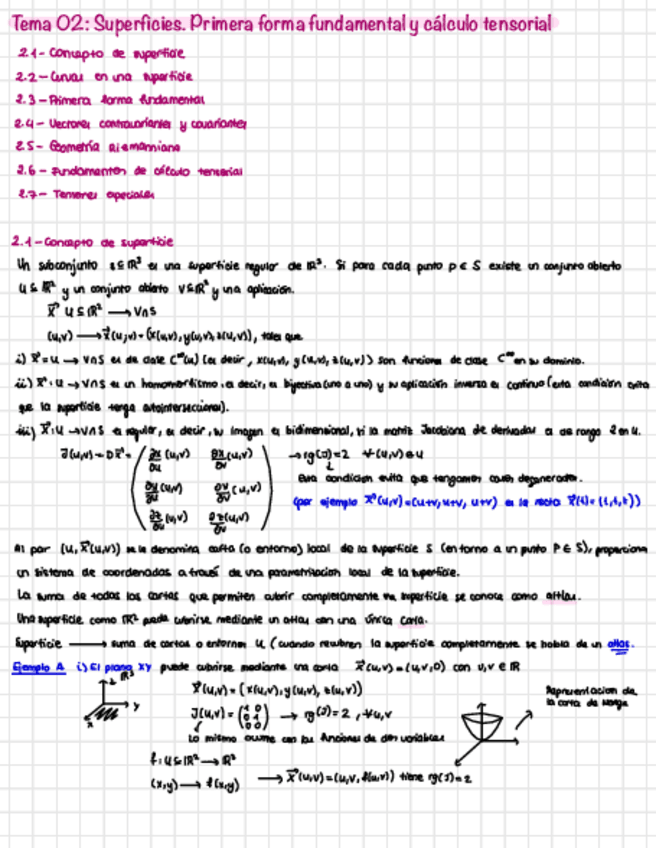 Tema 02: Superficies. Primera forma fundamental y cálculo tensorial
2.1- Concepto de superficie
2.2- Curvas en una superficie
2.3- Primera forma fundamental
2.4- Vectores contravariantes y covariantes
2.5- Geometría Riemanniana
2.6- Fundamentos de cálculo tensorial
2.7- Tensores especiales
2.1- Concepto de superficie
Un subconjunto s⊆ℝ³ es una superficie regular de ℝ³. Si para cada punto p∈S existe un conjunto abierto
U⊆ℝ² y un conjunto abierto V⊆ℝ³ y una aplicación.
x⃗ U⊆ℝ² → V∩S
(u,v) → x⃗(u,v)=(x(u,v),y(u,v),z(u,v)), tales que
i) x⃗=U → V∩S es de clase C^∞(u) (es decir, x(u,v), y(u,v), z(u,v)) son funciones de clase C^∞ en su dominio.
ii) x⃗:U → V∩S es un homomorfismo. es decir, es biyectiva (uno a uno) y su aplicación inversa es continua (esta condición evita
que la superficie tenga autointersecciones).
iii) x⃗:U → V∩S es regular, es decir, su imagen es bidimensional, si la matriz Jacobiana de derivadas es de rango 2 en U.
J(u,v)=Dx⃗= ∂x/∂u (u,v) ∂x/∂v (u,v) → rg(J)=2 ∀(u,v)∈U
∂y/∂u (u,v) ∂y/∂v (u,v) Esta condición evita que tengamos casos degenerados.
∂z/∂u (u,v) ∂z/∂v (u,v) (por ejemplo x⃗(u,v)=(u+v,u+v,u+v) es la recta x⃗(t)=(t,t,t))
Al par (U,x⃗(u,v)) se le denomina carta (o entorno) local de la superficie S (en torno a un punto P∈S), proporciona
un sistema de coordenadas a través de una parametrización local de la superficie.
La suma de todas las cartas que permiten cubrir completamente una superficie se conoce como atlas.
Una superficie como ℝ² puede cubrirse mediante un atlas con una única carta.
Superficie → suma de cartas o entornos U (cuando recubren la superficie completamente se habla de un atlas.
Ejemplo A i) El plano XY puede cubrirse mediante una carta x⃗(u,v)=(u,v,0) con u,v∈ℝ
z ℝ³
y
x
x⃗(u,v)=(x(u,v),y(u,v),z(u,v))
J(u,v)=(1 0 0 1 0 0) → rg(J)=2, ∀u,v
Lo mismo ocurre con las funciones de dos variables
f:U⊆ℝ² → ℝ
(x,y) → f(x,y) → x⃗(u,v)=(u,v,f(u,v)) tiene rg(J)=2
Representación de
la carta de Monge